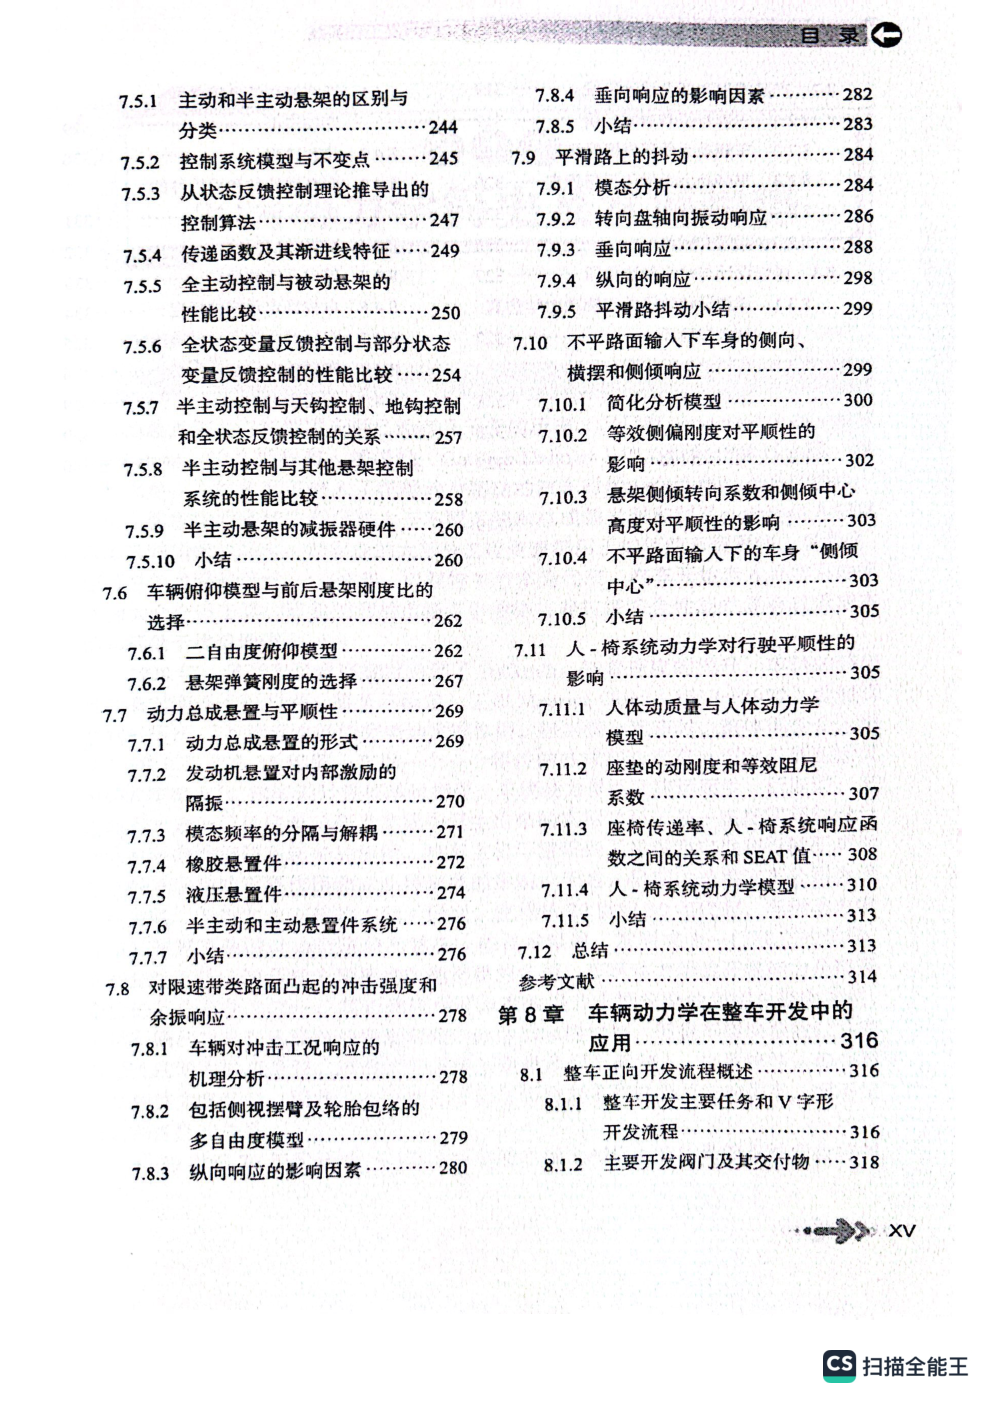 目 录
7.5.1 主动和半主动悬架的区别与
分类……………………………244
7.5.2 控制系统模型与不变点………245
7.5.3 从状态反馈控制理论推导出的
控制算法………………………247
7.5.4 传递函数及其渐进线特征……249
7.5.5 全主动控制与被动悬架的
性能比较………………………250
7.5.6 全状态变量反馈控制与部分状态
变量反馈控制的性能比较……254
7.5.7 半主动控制与天钩控制、地钩控制
和全状态反馈控制的关系………257
7.5.8 半主动控制与其他悬架控制
系统的性能比较………………258
7.5.9 半主动悬架的减振器硬件……260
7.5.10 小结…………………………260
7.6 车辆俯仰模型与前后悬架刚度比的
选择…………………………………262
7.6.1 二自由度俯仰模型……………262
7.6.2 悬架弹簧刚度的选择…………267
7.7 动力总成悬置与平顺性……………269
7.7.1 动力总成悬置的形式…………269
7.7.2 发动机悬置对内部激励的
隔振……………………………270
7.7.3 模态频率的分隔与解耦………271
7.7.4 橡胶悬置件……………………272
7.7.5 液压悬置件……………………274
7.7.6 半主动和主动悬置件系统……276
7.7.7 小结……………………………276
7.8 对限速带类路面凸起的冲击强度和
余振响应……………………………278
7.8.1 车辆对冲击工况响应的
机理分析………………………278
7.8.2 包括侧视摆臂及轮胎包络的
多自由度模型…………………279
7.8.3 纵向响应的影响因素…………280
7.8.4 垂向响应的影响因素…………282
7.8.5 小结……………………………283
7.9 平滑路上的抖动……………………284
7.9.1 模态分析………………………284
7.9.2 转向盘轴向振动响应…………286
7.9.3 垂向响应………………………288
7.9.4 纵向的响应……………………298
7.9.5 平滑路抖动小结………………299
7.10 不平路面输入下车身的侧向、
横摆和侧倾响应…………………299
7.10.1 简化分析模型………………300
7.10.2 等效侧偏刚度对平顺性的
影响…………………………302
7.10.3 悬架侧倾转向系数和侧倾中心
高度对平顺性的影响………303
7.10.4 不平路面输入下的车身“侧倾
中心”…………………………303
7.10.5 小结…………………………305
7.11 人-椅系统动力学对行驶平顺性的
影响………………………………305
7.11.1 人体动质量与人体动力学
模型…………………………305
7.11.2 座垫的动刚度和等效阻尼
系数…………………………307
7.11.3 座椅传递率、人-椅系统响应函
数之间的关系和 SEAT 值……308
7.11.4 人-椅系统动力学模型………310
7.11.5 小结…………………………313
7.12 总结………………………………313
参考文献…………………………………314
第 8 章 车辆动力学在整车开发中的
应用…………………………316
8.1 整车正向开发流程概述……………316
8.1.1 整车开发主要任务和 V 字形
开发流程………………………316
8.1.2 主要开发阀门及其交付物……318
XV
CS 扫描全能王